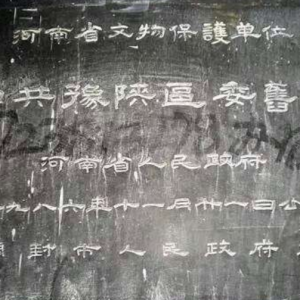 河南省文物保護单位
共豫陝區委舊
河南省人民政府
九八六年十一月廿一日公
封市人民政府